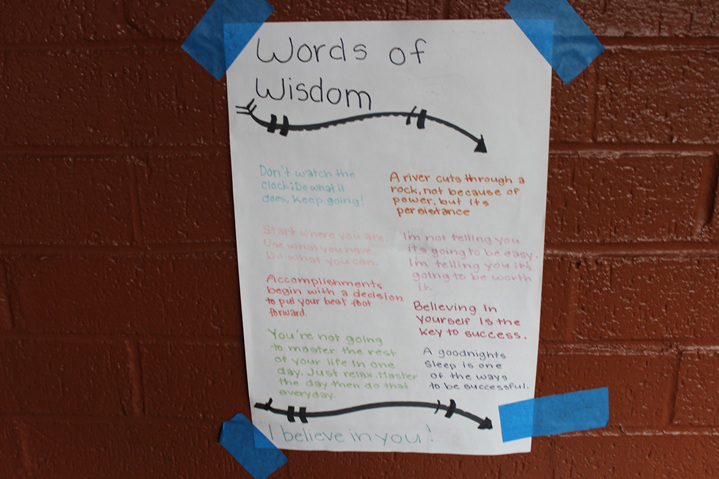 Words of
Wisdom
Don't watch the
clock; Do what it
does, keep going!
Start where you are
Use what you have
Do what you can.
Accomplishments
begin with a decision
to put your best foot
forward.
You're not going
to master the rest
of your life in one
day. Just relax. Master
the day then do that
everyday.
A river cuts through a
rock, not because of
power, but its
persistance
I'm not telling you
it's going to be easy.
I'm telling you it's
going to be worth
it.
Believing in
yourself is the
key to success.
A goodnights
sleep is one
of the ways
to be successful.
I believe in you!